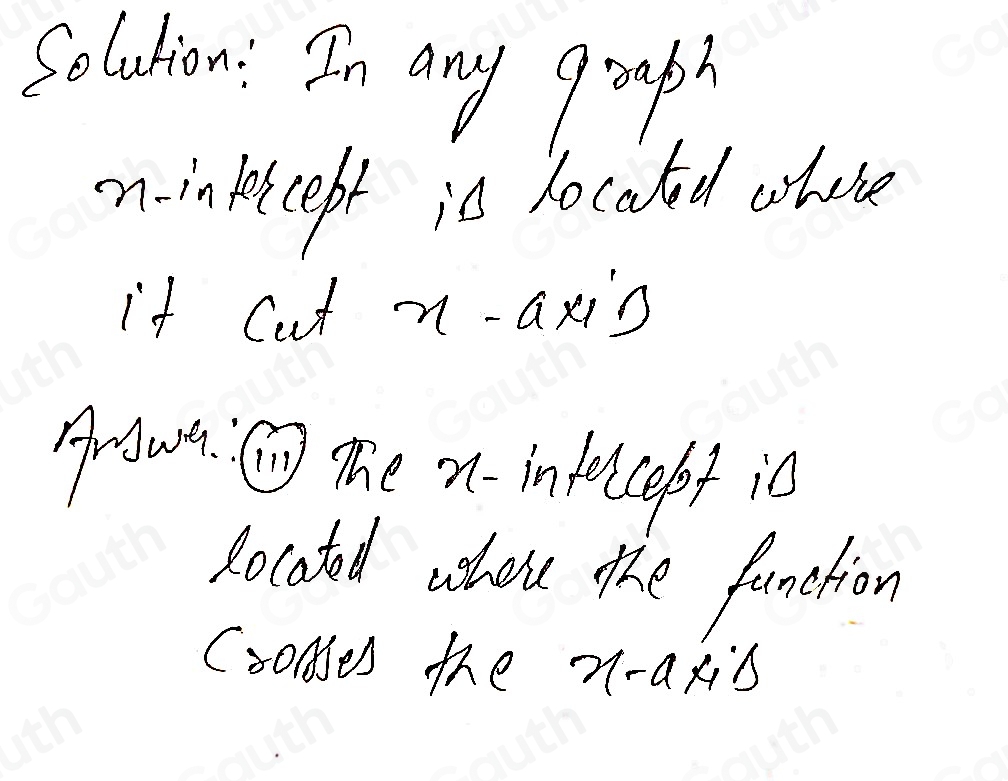 Solution: In any graph
x-intercept is located where
it cut x-axis
Answer: (iii) The x-intercept is
located where the function
crosses the x-axis